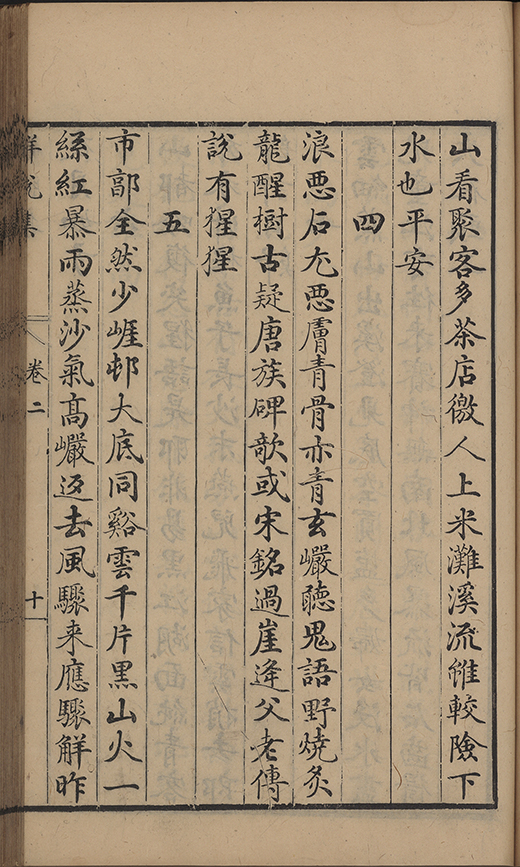 山看聚客多茶店微人上米灘溪流雖較險下
水也平安
四
浪惡石尤惡膚青骨亦青玄巗聽鬼語野燒炙
龍醒樹古疑唐族碑欹或宋銘過崖逢父老傳
說有猩猩
五
市鄗全然少崕邨大底同谿雲千片黑山火一
絲紅暴雨蒸沙氣高巗返去風驟来應驟解昨
卷二
十